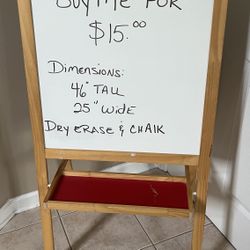 BUY ME FOR
$15.00
DIMENSIONS:
46" TALL
25" WIDE
DRY ERASE & CHALK